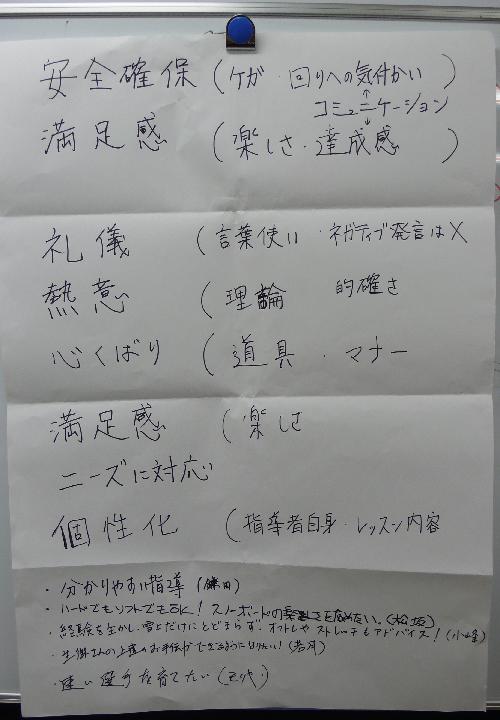 安全確保（ケガ・回りへの気付かい）
コミュニケーション
満足感（楽しさ・達成感）
礼儀（言葉使い・ネガティブ発言は×
熱意（理論 的確さ
心くばり（道具・マナー
満足感（楽しさ
ニーズに対応
個性化（指導者自身・レッスン内容
・分かりやすい指導（鎌田）
・ハードでもソフトでもOK！スノーボードの楽しさを広めたい。（松坂）
・経験を生かし、雪上だけにとどまらず、オフトレやストレッチもアドバイス！（小峰）
・生徒さんの上達のお手伝ができるようになりたい！（若月）
・速い選手を育てたい